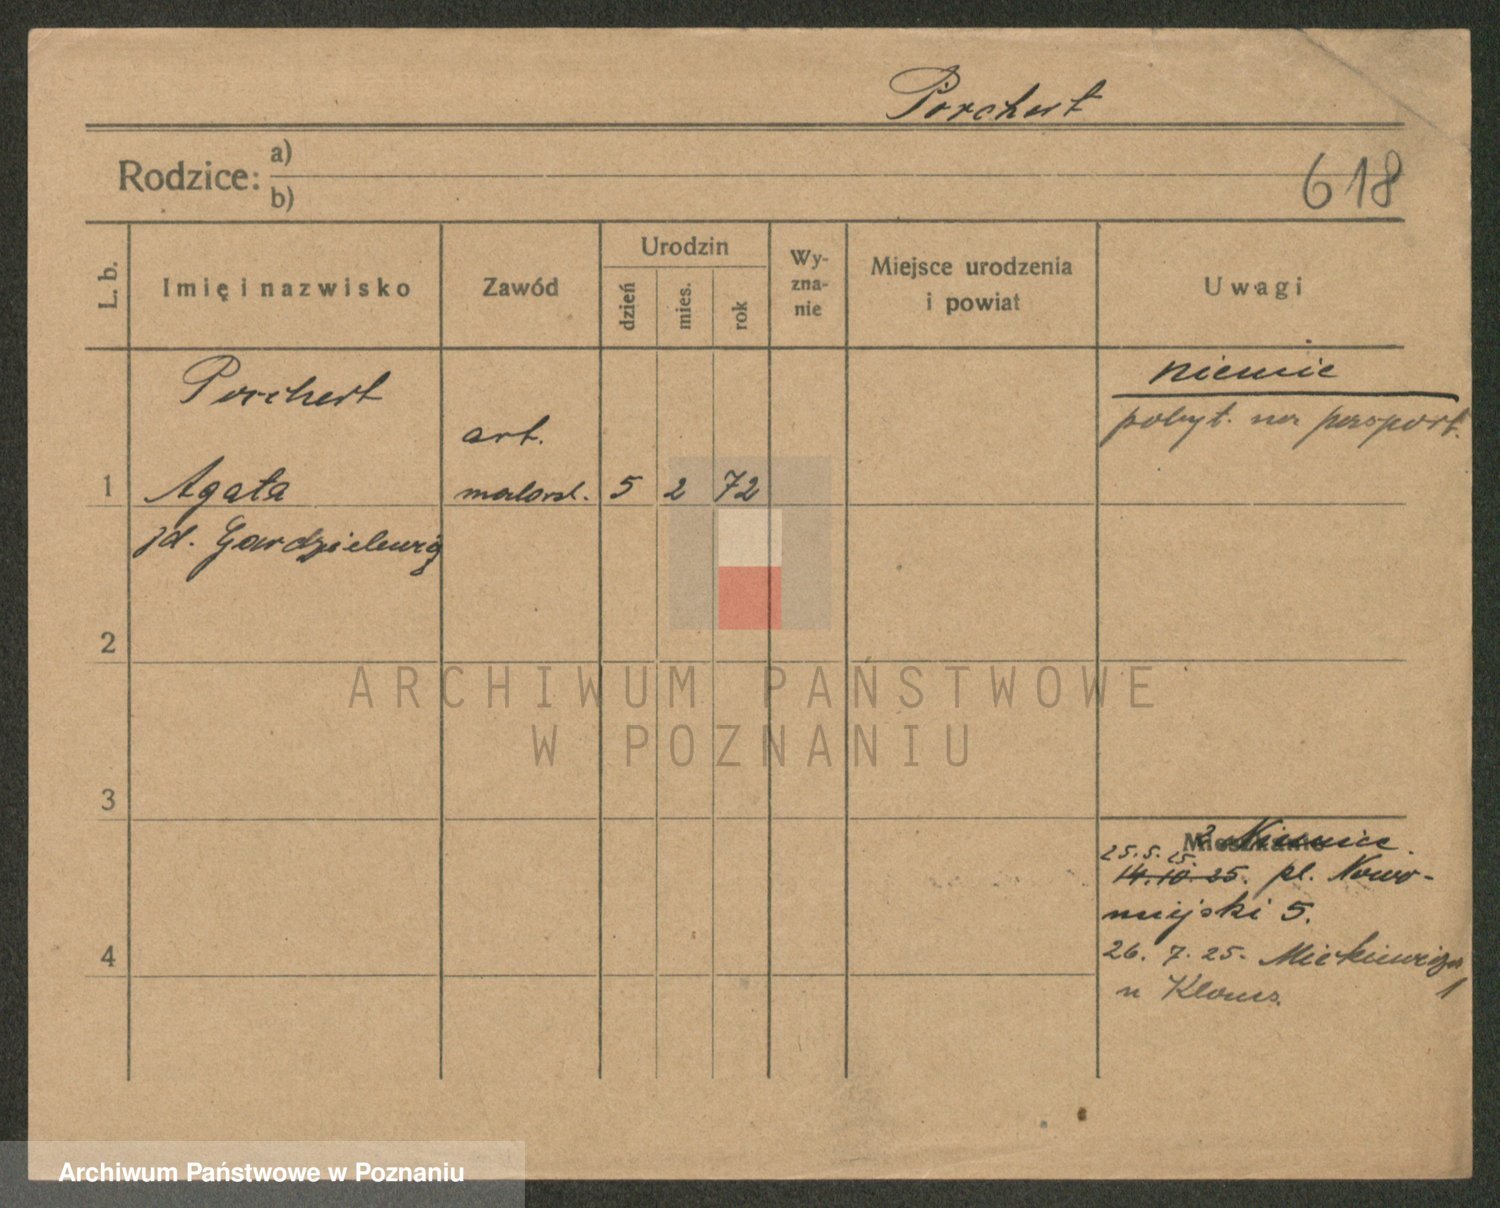 Porchert
Rodzice:
a)
b)
618
L. b.
Imię i nazwisko
Zawód
Urodzin
dzień
mies.
rok
Wy-
zna-
nie
Miejsce urodzenia
i powiat
Uwagi
Porchert
niemic
pobyt. na paszport.
art.
1 Agata malarst. 5 2 72
Gardzielewig
2
3
4
ARCHIWUM PAŃSTWOWE
W POZNANIU
Mieszkanie
z Niemiec.
25. 5. 25.
14. 10. 25. pl. Nowo-
miejski 5.
26. 7. 25. Mickiewicza 1
u
Archiwum Państwowe w Poznaniu